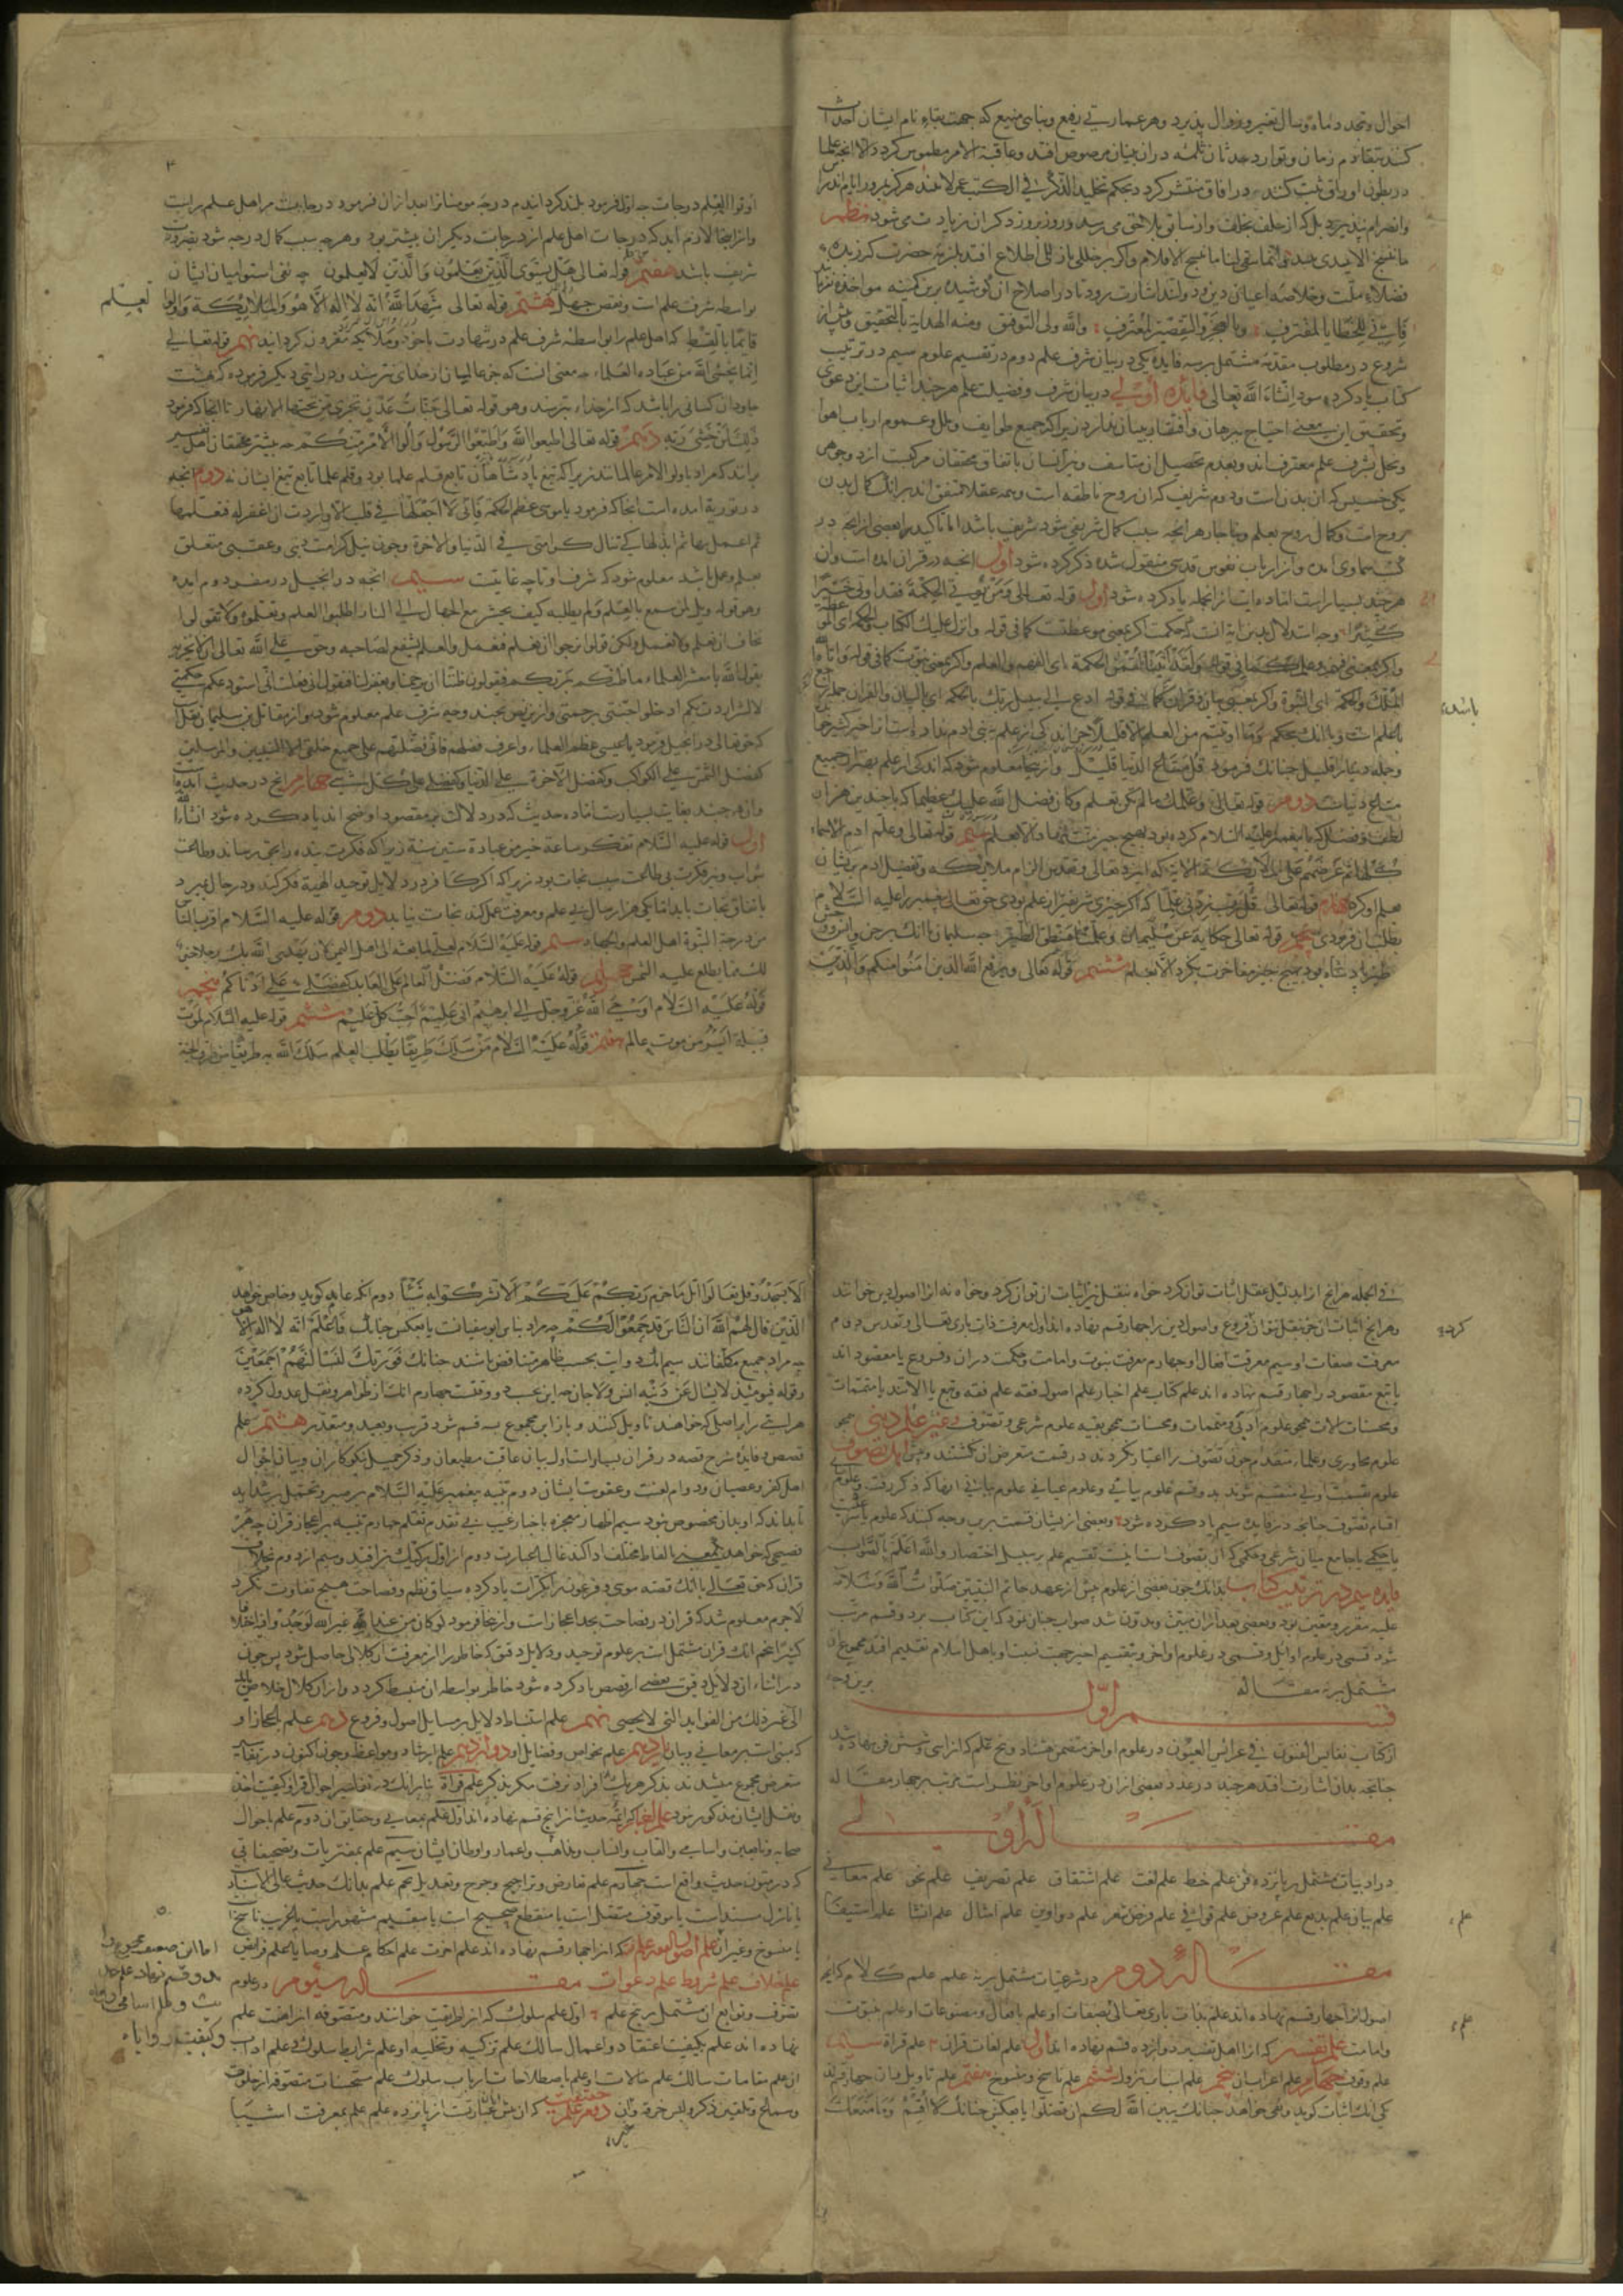 احوال و تجدد ماه و سال تغیر و زوال پذیرد و هر عمارتی رفیع و بنایی منیع که جهت بقاء نام ایشان احداث
کنند بتقادم زمان و توارد حدثان ثلمه در ان بنیان مرصوص افتد و عاقبة الامر مطموس کردد الا انچه علما
در بطون اوراق ثبت کنند و در افاق منتشر کردد بحکم تخلید الذکر فی الکتب عمر لا یبید هرکز بمرور ایام اندراس
وانصرام نپذیرد بل که از خلف بخلف و از سابق بلاحق می رسد و روز بروز ذکر ان زیادت می شود نظم
فضلاء ملت و خلاصه اعیان دین و دولت اند اشارت رود تا در اصلاح ان کوشیده برین کمینه مواخذه نفرمایند
فانی للخطایا لمقترف وبالعجز والتقصیر لمعترف والله ولی التوفیق ومنه الهدایة بالتحقیق
شروع در مطلوب مقدمه مشتمل بر سه فایده یکی در بیان شرف علم دوم در تقسیم علوم سیم در ترتیب
کتاب یاد کرده سود انشاء الله تعالی فایده اولی در بیان شرف و فضیلت علم هرچند اثبات این دعوی
وتحقیق این معنی احتیاج ببرهان و افتقار ببیان ندارد زیرا که جمیع طوایف و ملل و عموم ارباب اهوا
ونحل بشرف علم معترف اند و بعدم تحصیل ان متاسف و نیز انسان باتفاق محققان مرکبست از دو جوهر
یکی خسیس که ان بدن است و دوم شریف که ان روح ناطقه است و همه عقلا متفق اند بر انک کمال بدن
بروح است و کمال روح بعلم و ناچار هر انچه سبب کمال شریفی شود شریف باشد اما تاکید را بعضی از انچه در
کتب سماوی امده و از ارباب نفوس قدسی منقول شده ذکر کرده شود اول انچه در قران امده است و ان
هرچند بسیار است اما ده ایت از انجمله یاد کرده شود اول قوله تعالی ومن یؤت الحکمة فقد اوتی خیرا
کثیرا وجه استدلال بدین ایة انست که حکمت اکر بمعنی موعظتست کما فی قوله وانزل علیک الکتاب والحکمة
واکر بمعنی فهم و علم کما فی قوله ولقد اتینا لقمن الحکمة ای الفهم والعلم واکر بمعنی نبوت کما فی قوله واتاه الله
الملک والحکمة ای النبوة واکر بمعنی بیان قران کما فی قوله ادع الی سبیل ربک بالحکمة ای بالبیان والقران
باشد
بعلم است و با انک بحکم وما اوتیتم من العلم الا قلیلا جز اندکی از علم ببنی ادم نداده است انرا خیر کثیر خواند
وجمله دنیا را قلیل چنانک فرمود قل متاع الدنیا قلیل و از اینجا معلوم شود که اندکی از علم بهتر از جمیع
متاع دنیاست دوم قوله تعالی وعلمک ما لم تکن تعلم وکان فضل الله علیک عظیما که با چندین هزار
لطف و فضل که با پیغمبر علیه السلام کرده بود بهیچ چیز منت ننهاد الا بعلم سیم قوله تعالی وعلم ادم الاسماء
کلها ثم عرضهم علی الملائکة الایة که ایزد تعالی و تقدس الزام ملائکه و تفضیل ادم بر ایشان
بعلم او کرد چهارم قوله تعالی قل رب زدنی علما که اکر چیزی شریفتر از علم بودی حق تعالی پیغمبر را علیه السلام
بطلب ان فرمودی پنجم قوله تعالی حکایة عن سلیمان وعلمنا منطق الطیر چه سلیمان با انک بر جن و انس و وحش
طیر پادشاه بود بهیچ چیز مفاخرت نکرد الا بعلم ششم قوله تعالی ویرفع الله الذین امنوا منکم والذین
۴
اوتوا العلم درجات چه اول فرمود بلند کردانیدم درجه مومنانرا بعد ازان فرمود درجاتیست مر اهل علم راست
و از اینجا لازم اید که درجات اهل علم از درجات دیکران بیشتر بود و هرچه سبب کمال درجه شود بضرورت
شریف باشد هفتم قوله تعالی هل یستوی الذین یعلمون والذین لا یعلمون چه نفی استوا میان ایشان
بواسطه شرف علم است و نقص جهل هشتم قوله تعالی شهد الله انه لا اله الا هو والملائکة واولوا
العلم
قائما بالقسط که اهل علم را بواسطه شرف علم در شهادت با خود و ملائکه مقرون کردانید نهم قوله تعالی
انما یخشی الله من عباده العلماء چه معنی انست که جز عالمان از خدای نترسند و در ایتی دیکر فرموده که بهشت
جاودان کسانی را باشد که از خدا بترسند وهو قوله تعالی جنات عدن تجری من تحتها الانهار تا انجا که فرمود
ذلک لمن خشی ربه دهم قوله تعالی اطیعوا الله واطیعوا الرسول واولوا الامر منکم چه بیشتر محققان اهل تفسیر
براند که مراد باولو الامر عالمانند زیرا که تیغ پادشاهان تابع قلم علما بود و قلم علما تابع تیغ ایشان نه دوم انچه
در توریة امده است انجا که فرمود یا موسی عظم الحکمة فانی لا اجعلها فی قلب الا واردت ان اغفر له فتعلمها
ثم اعمل بها ثم ابذلها کی تنال کرامتی فی الدنیا والاخرة و چون نیل کرامت دینی و عقبی متعلق
بعلم و عمل باشد معلوم شود که شرف او تا چه غایتست سیم انچه در انجیل در سفر دوم امده
وهو قوله ویل لمن سمع بالعلم ولم یطلبه کیف یحشر مع الجهال الی النار اطلبوا العلم وتعلموه ولا تقولوا
نخاف ان نعلم ولا نعمل ولکن قولوا نرجوا ان نعلم فنعمل والعلم یشفع لصاحبه وحق علی الله تعالی ان لا یخزیه
یقول الله یا معشر العلماء ما ظنکم بربکم فیقولون ظننا ان یرحمنا ویغفر لنا فیقول انی فعلت انی استودعکم حکمتی
لا لشر اردت بکم ادخلوا جنتی برحمتی و ازین نص بچند وجه شرف علم معلوم شود و از مقاتل بن سلیمان نقلست
که حق تعالی در انجیل فرمود یا عیسی عظم العلماء واعرف فضلهم فانی فضلتهم علی جمیع خلقی الا النبیین والمرسلین
کفضل الشمس علی الکواکب وکفضل الآخرة علی الدنیا وکفضلی علی کل شیء چهارم انچه در حدیث امده
و ان هرچند بغایت بسیارست اما ده حدیث که در دلالت بر مقصود اوضح اند یاد کرده شود انشاء الله
اول قوله علیه السلام تفکر ساعة خیر من عبادة ستین سنة زیرا که فکرت بنده را بحق رساند و طاعت
بثواب و نیز فکرت بی طاعت سبب نجات بود زیرا که اکر کافر در دلایل توحید الهیه فکر کند و در حال بمیرد
باتفاق نجات یابد اما کر هزار سال بی علم و معرفت عمل کند نجات نیابد دوم قوله علیه السلام اقرب الناس
من درجة النبوة اهل العلم والجهاد سیم قوله علیه السلام لعلی لما بعثه الی اهل الیمن لان یهدی الله بک رجلا خیر
لک مما یطلع علیه الشمس چهارم قوله علیه السلام فضل العالم علی العابد کفضلی علی ادناکم پنجم
قوله علیه السلام اوحی الله عز وجل الی ابرهیم انی علیم احب کل علیم ششم قوله علیه السلام لموت
قبیلة ایسر من موت عالم هفتم قوله علیه السلام من سلک طریقا یطلب العلم سلک الله به طریقا من طرق الجنة
فی الجمله هر انچ از ابدلیل عقل اثبات توان کرد خواه بنقل نیز اثبات ان توان کرد و خواه نه انرا اصول دین خوانند
و هر انچ اثبات ان جز بنقل نتوان فروع و اصول دین را چهار قسم نهاده اند اول معرفت ذات باری تعالی و تقدس دوم
کرد
معرفت صفات او سیم معرفت افعال او چهارم معرفت نبوت و امامت و حکمت دران و فروع یا مقصود اند
یا تبع مقصود را چهار قسم نهاده اند علم کتاب علم اخبار علم اصول فقه علم فقه و تبع یا الاتند یا متممات
و محسنات الات همچو علوم ادبی و متممات و محسنات همچو بقیه علوم شرعی و تصوف و غیر علم دینی همچو
علوم محاوری و علماء متقدم چون تصوف را اعتبار نکردند در قسمت متعرض ان نکشتند و پیش اهل تصوف
علوم بقسمت اولی منقسم شوند بدو قسم علوم بیانی و علوم عیانی علوم بیانی انها که ذکر رفت و علوم عیانی
اقسام تصوف چنانچه در فایده سیم یاد کرده شود و بعضی از ایشان قسمت برین وجه کنند که علوم یا شرعیست
یا حکمی یا جامع میان شرعی و حکمی که ان تصوف است اینست تقسیم علم بر سبیل اختصار والله اعلم بالصواب
فایده سیم در ترتیب کتاب بدانک چون بعضی از علوم پیش از عهد خاتم النبیین صلوات الله وسلامه
علیه مقرر و معین بود و بعضی بعد از ان مبین و مدون شد صواب چنان نمود که این کتاب بر دو قسم مرتب
شود قسمی در علوم اوایل و قسمی در علوم اواخر و بتقسیم اخیر چهت نسبت او باهل اسلام تقدیم افتد مجموع ان
مشتمل بر نه مقاله برین وجه
قسم اول
از کتاب نفایس الفنون فی عرایس العیون در علوم اواخر متضمن هشتاد و پنج علم که انرا سی و شش فن نهاده شد
چنانچه بدان اشارت افتد هرچند در عدد بعضی از ان در علوم اواخر نظر است مرتب بر چهار مقاله
مقالة اولی
در ادبیات مشتمل بر پانزده فن علم خط علم لغت علم اشتقاق علم تصریف علم نحو علم معانی
علم بیان علم بدیع علم عروض علم قوافی علم قرض شعر علم دواوین علم امثال علم انشا علم استیفا
علم
مقالة دوم در شرعیات مشتمل بر نه علم علم کلام که ایه
اصول انرا چهار قسم نهاده اند علم بذات باری تعالی بصفات او علم بافعال و مصنوعات او علم بنبوت
علم
وامامت علم تفسیر که انرا اهل تفسیر دوازده قسم نهاده اند اول علم لغات قران ۲ علم قراة سیم
علم وقوف چهارم علم اعراب ان پنجم علم اسباب نزول ششم علم ناسخ و منسوخ هفتم علم تاویل و ان چهار قسمند
یکی انک اثبات کوید و نفی خواهد چنانک یبین الله لکم ان تضلوا یا بعکس چنانک لا اقسم وما منعک
الا تسجد وقل تعالوا اتل ما حرم ربکم علیکم الا تشرکوا به شیئا دوم انکه عام کوید و خاص خواهد
الذین قال لهم الناس ان الناس قد جمعوا لکم چه مراد بناس ابو سفیانست یا بعکس چنانک فاعلم انه لا اله الا هو
چه مراد جمیع مکلفانند سیم انک دو ایت بحسب ظاهر متناقض باشند چنانک فوربک لنسألنهم اجمعین
و قوله فیومئذ لا یسال عن ذنبه انس ولا جان چه این بحسب دو وقتست چهارم انک از ظواهر و نقل عدول کرده
هر ایتی را بر اصلی که خواهند تاویل کنند و باز این مجموع بسه قسم شود قریب و بعید و متعذر هشتم علم
قصص و فایده شرح قصه در قران بسیار است اول بیان عاقبت مطیعان و ذکر جمیل نکوکاران و بیان احوال
اهل کفر و عصیان و دوام لعنت و عقوبت ایشان دوم تنبیه پیغمبر علیه السلام بر صبر و تحمل بر شداید
تا بداند که او بدان مخصوص نبود سیم اظهار معجزه باخبار غیب بی تقدم تعلم چهارم تنبیه بر اعجاز قران چه هر
فصیحی که خواهد معنی بالفاظ مختلف ادا کند غالبا عبارت دوم از اول رکیک تر افتد و سیم از دوم بخلاف
قران که حق تعالی با انک قصه موسی و فرعون را بکرات یاد کرده سیاق نظم و فصاحت هیچ تفاوت نکرد
لاجرم معلوم شد که قران در فصاحت بحد اعجاز است و از اینجا فرمود لو کان من عند غیر الله لوجدوا فیه اختلافا
کثیرا پنجم انک قران مشتمل است بر علوم توحید و دلایل دقیق که خاطر را از معرفت ان کلالی حاصل شود پس چون
در اثناء ان دلایل دقیق بعضی از قصص یاد کرده شود خاطر بواسطه ان منبسط کردد و ازان کلال خلاص یابد
الی غیر ذلک من الفواید التی لا یحصی نهم علم استنباط دلایل بر مسایل اصول و فروع دهم علم اعجاز او
که مبنی است بر معانی و بیان یازدهم علم بخواص و فضایل او دوازدهم علم ارشاد و مواعظ و چون اکنون در تفاسیر
متعرض مجموع میشدند بذکر هر یک بافراد نرفت مکر بذکر علم قراة بنابرانک در تفاسیر احوال قرا و کیفیت اخذ
ونقل ایشان مذکور نبود علم اخبار که ایمه حدیث انرا پنج قسم نهاده اند اول علم بمعانی و حقایق ان دوم علم باحوال
صحابه و تابعین و اسامی و القاب و انساب و مذاهب و اعمار و اوطان ایشان سیم علم بمفتریات و تصحیفاتی
که در متون حدیث واقع است چهارم علم تعارض و تراجیح و جرح و تعدیل پنجم علم بدانک حدیث عالی الاسناد است
یا نازل مسند است یا موقوف متصل است یا منقطع صحیح است یا سقیم مشهور است یا غریب ناسخ
یا منسوخ و غیر ان علم اصول فقه علم فقه که انرا چهار قسم نهاده اند علم احکام علم وصایا علم فرایض
علم خلاف علم شروط علم دعوات مقاله سیوم در علوم
تصوف و توابع ان مشتمل بر پنج علم اول علم سلوک که انرا طریقت خوانند و متصوفه انرا هفت علم
نهاده اند علم بکیفیت اعتقاد و اعمال سالک علم تزکیه و تخلیه او علم شرایط سلوک علم اداب
ان علم مقامات سالک علم حالات او علم باصطلاحات ارباب سلوک علم مستحسنات متصوفه از خلوت
وسماع و تلقین ذکر و لبس خرقه و ان دوم علم حقیقت که ان عبارت از پانزده علم علم بمعرفت اشیا